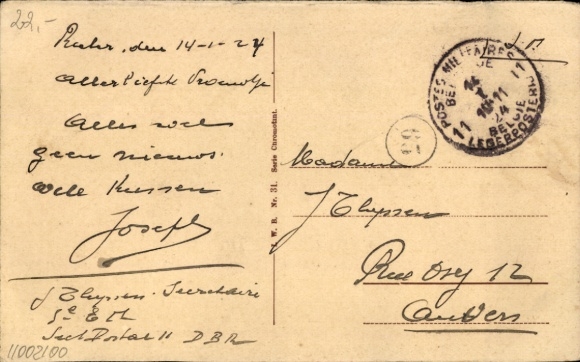 22,-
Ruhr, den 14-1-24
Allerliefste Vrouwtje
Alles wel
geen nieuws.
Vele Kussen
Joseph
J Thyssen. Secretaire
Sect Postal 11 D B R
11002100
Serie Chromotant.
I. W. B. Nr. 31.
S.M.
POSTES MILITAIRES BELGIQUE
14
I
10-11
24
BELGIE
LEGERPOSTERIJ
11 11
83
Madame
J Thyssen
Rue Osy 12
Anvers